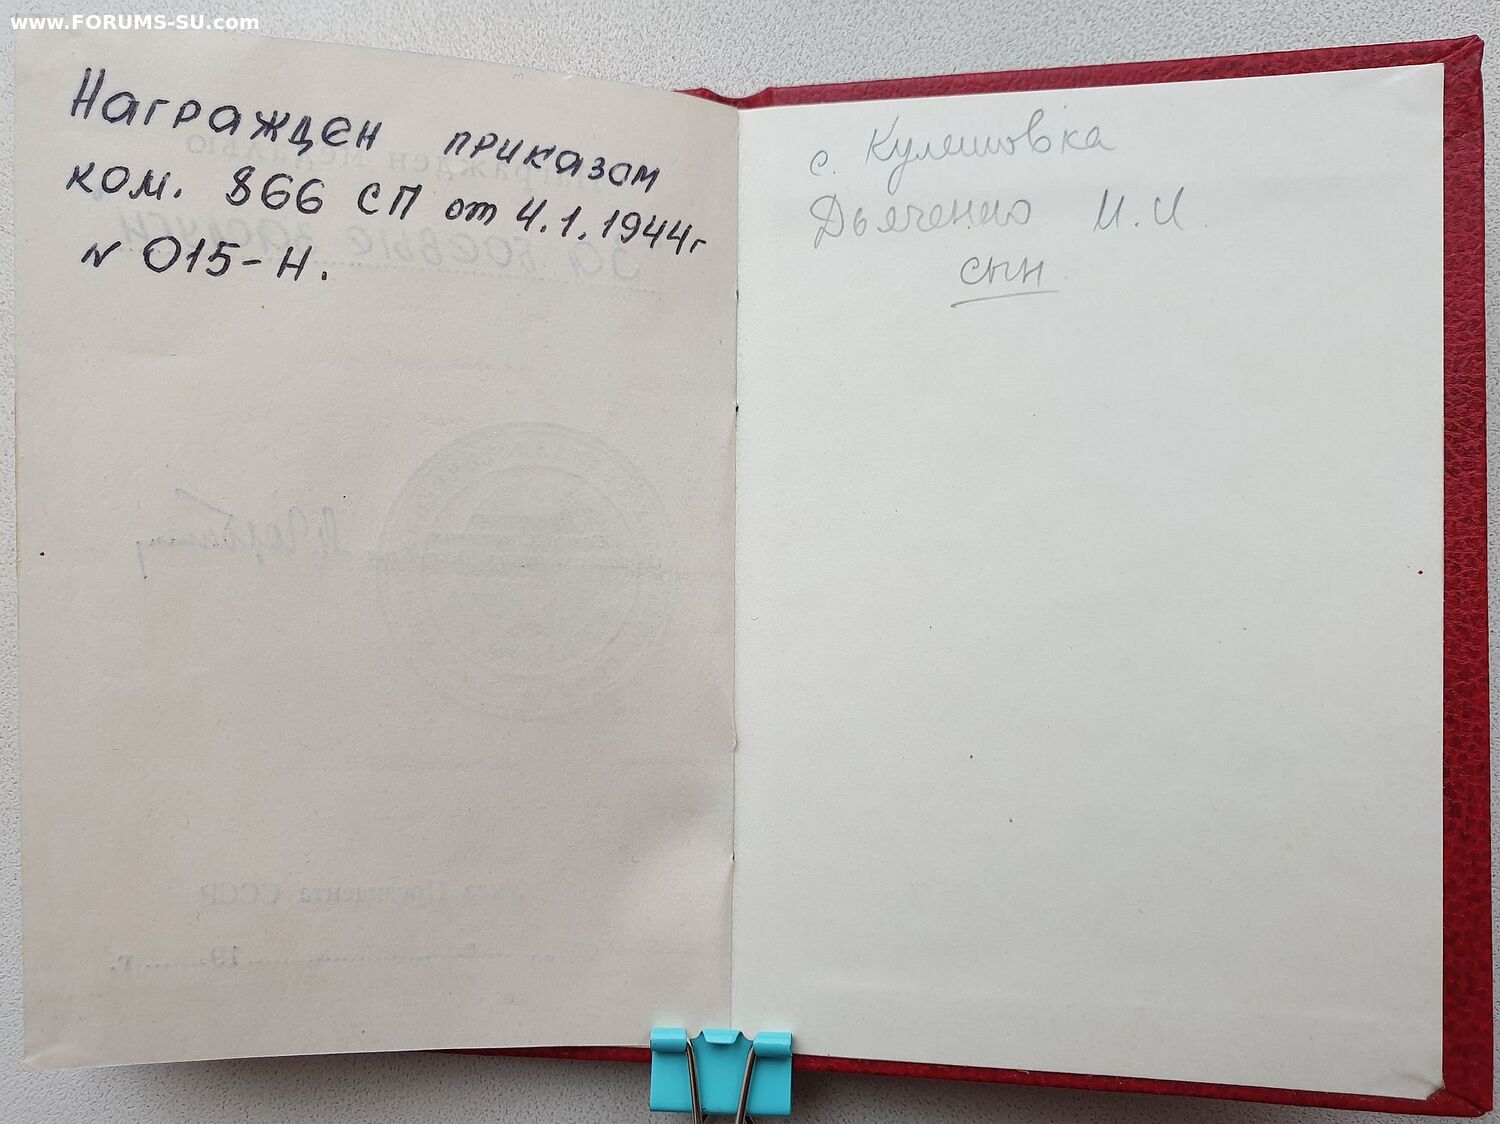 www.FORUMS-SU.com
Награжден приказом
ком. 866 СП от 4.1.1944г
№ 015-Н.
с. Кулешовка
Дьяченко И.И.
сын